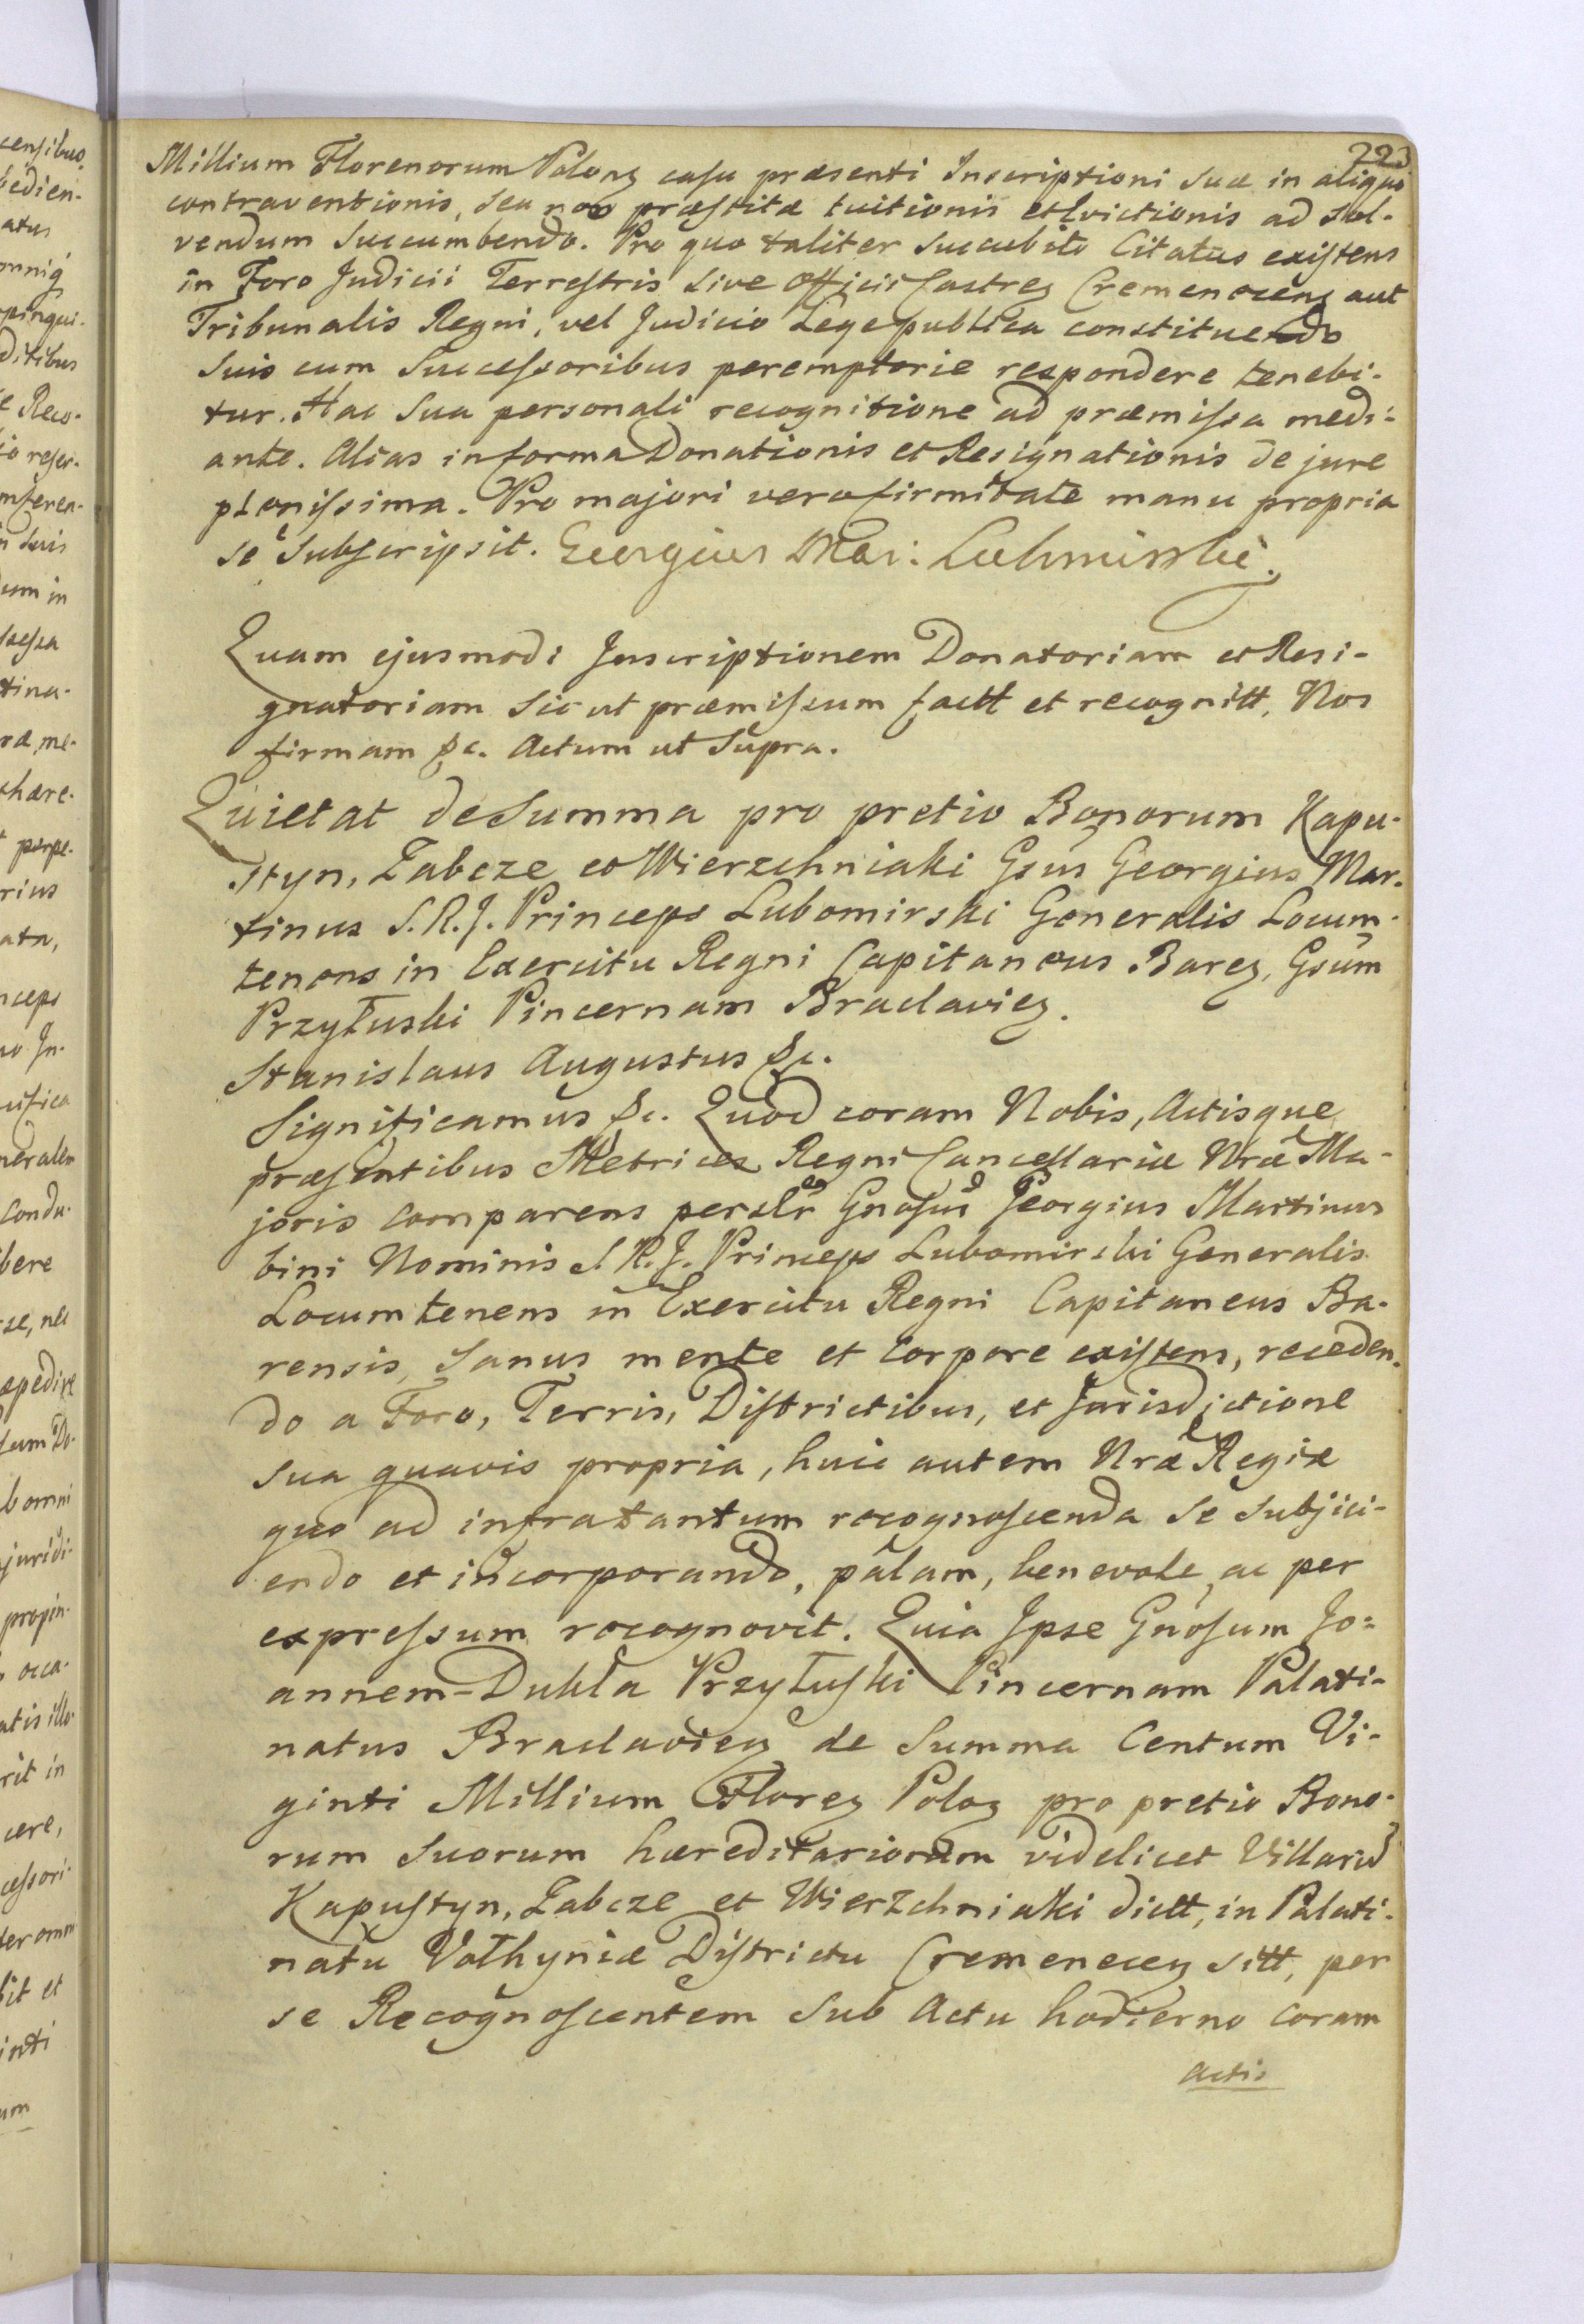 223
Millium Florenorum Polonz casu præsenti Inscriptioni suæ in aliquo
contraventionis, seu non præstitæ tuitionis et Evictionis ad sol-
vendum succumbendo. Pro quo taliter succubito Citatus existens
in Foro Judicii Terrestris sive Officii Castrez Cremenecenz aut
Tribunalis Regni, vel Judicio Lege publica constituendo
suis cum Successoribus peremptorie respondere tenebi-
tur. Hac sua personali recognitione ad præmissa medi-
ante. Alias in forma Donationis et Resignationis de jure
plenissima. Pro majori vero firmitate manu propria
se subscripsit. Georgius Mar: Lubomirski.
Quam ejusmodi Inscriptionem Donatoriam et Resi-
gnatoriam sicut præmissum factt et recognitt, Nos
firmam &c. Actum ut Supra.
Quietat de Summa pro pretio Bonorum Kapu-
styn, Zabcze et Wierzchniaki Gsus Georgius Mar-
tinus S.R.J. Princeps Lubomirski Generalis Locum-
tenens in Exercitu Regni Capitaneus Barez, Gsum
Przyłuski Pincernam Braclaviez.
Stanislaus Augustus &c.
Significamus &c. Quod coram Nobis, Actisque
præsentibus Metrices Regni Cancellariæ Nræ Ma-
joris comparens perslr Gnosus Georgius Martinus
bini Nominis S.R.J. Princeps Lubomirski Generalis
Locumtenens in Exercitu Regni Capitaneus Ba-
rensis, sanus mente et corpore existens, receden-
do a Foro, Terris, Districtibus, et Jurisdictione
sua quavis propria, huic autem Nræ Regiæ
quo ad infra tantum recognoscenda se subjici-
endo et incorporando, palam, benevole, ac per
expressum recognovit. Quia Ipse Gnosum Jo=
annem-Dukla Przyłuski Pincernam Palati-
natus Braclaviez de Summa Centum Vi-
ginti Millium Florez Poloz pro pretio Bono-
rum suorum hæreditariorum videlicet Villaru
Kapustyn, Zabcze et Wierzchniaki dictt, in Palati-
natu Volhyniæ Districtu Cremenecez sitt, per
se Recognoscentem sub Actu hodierno coram
Actis